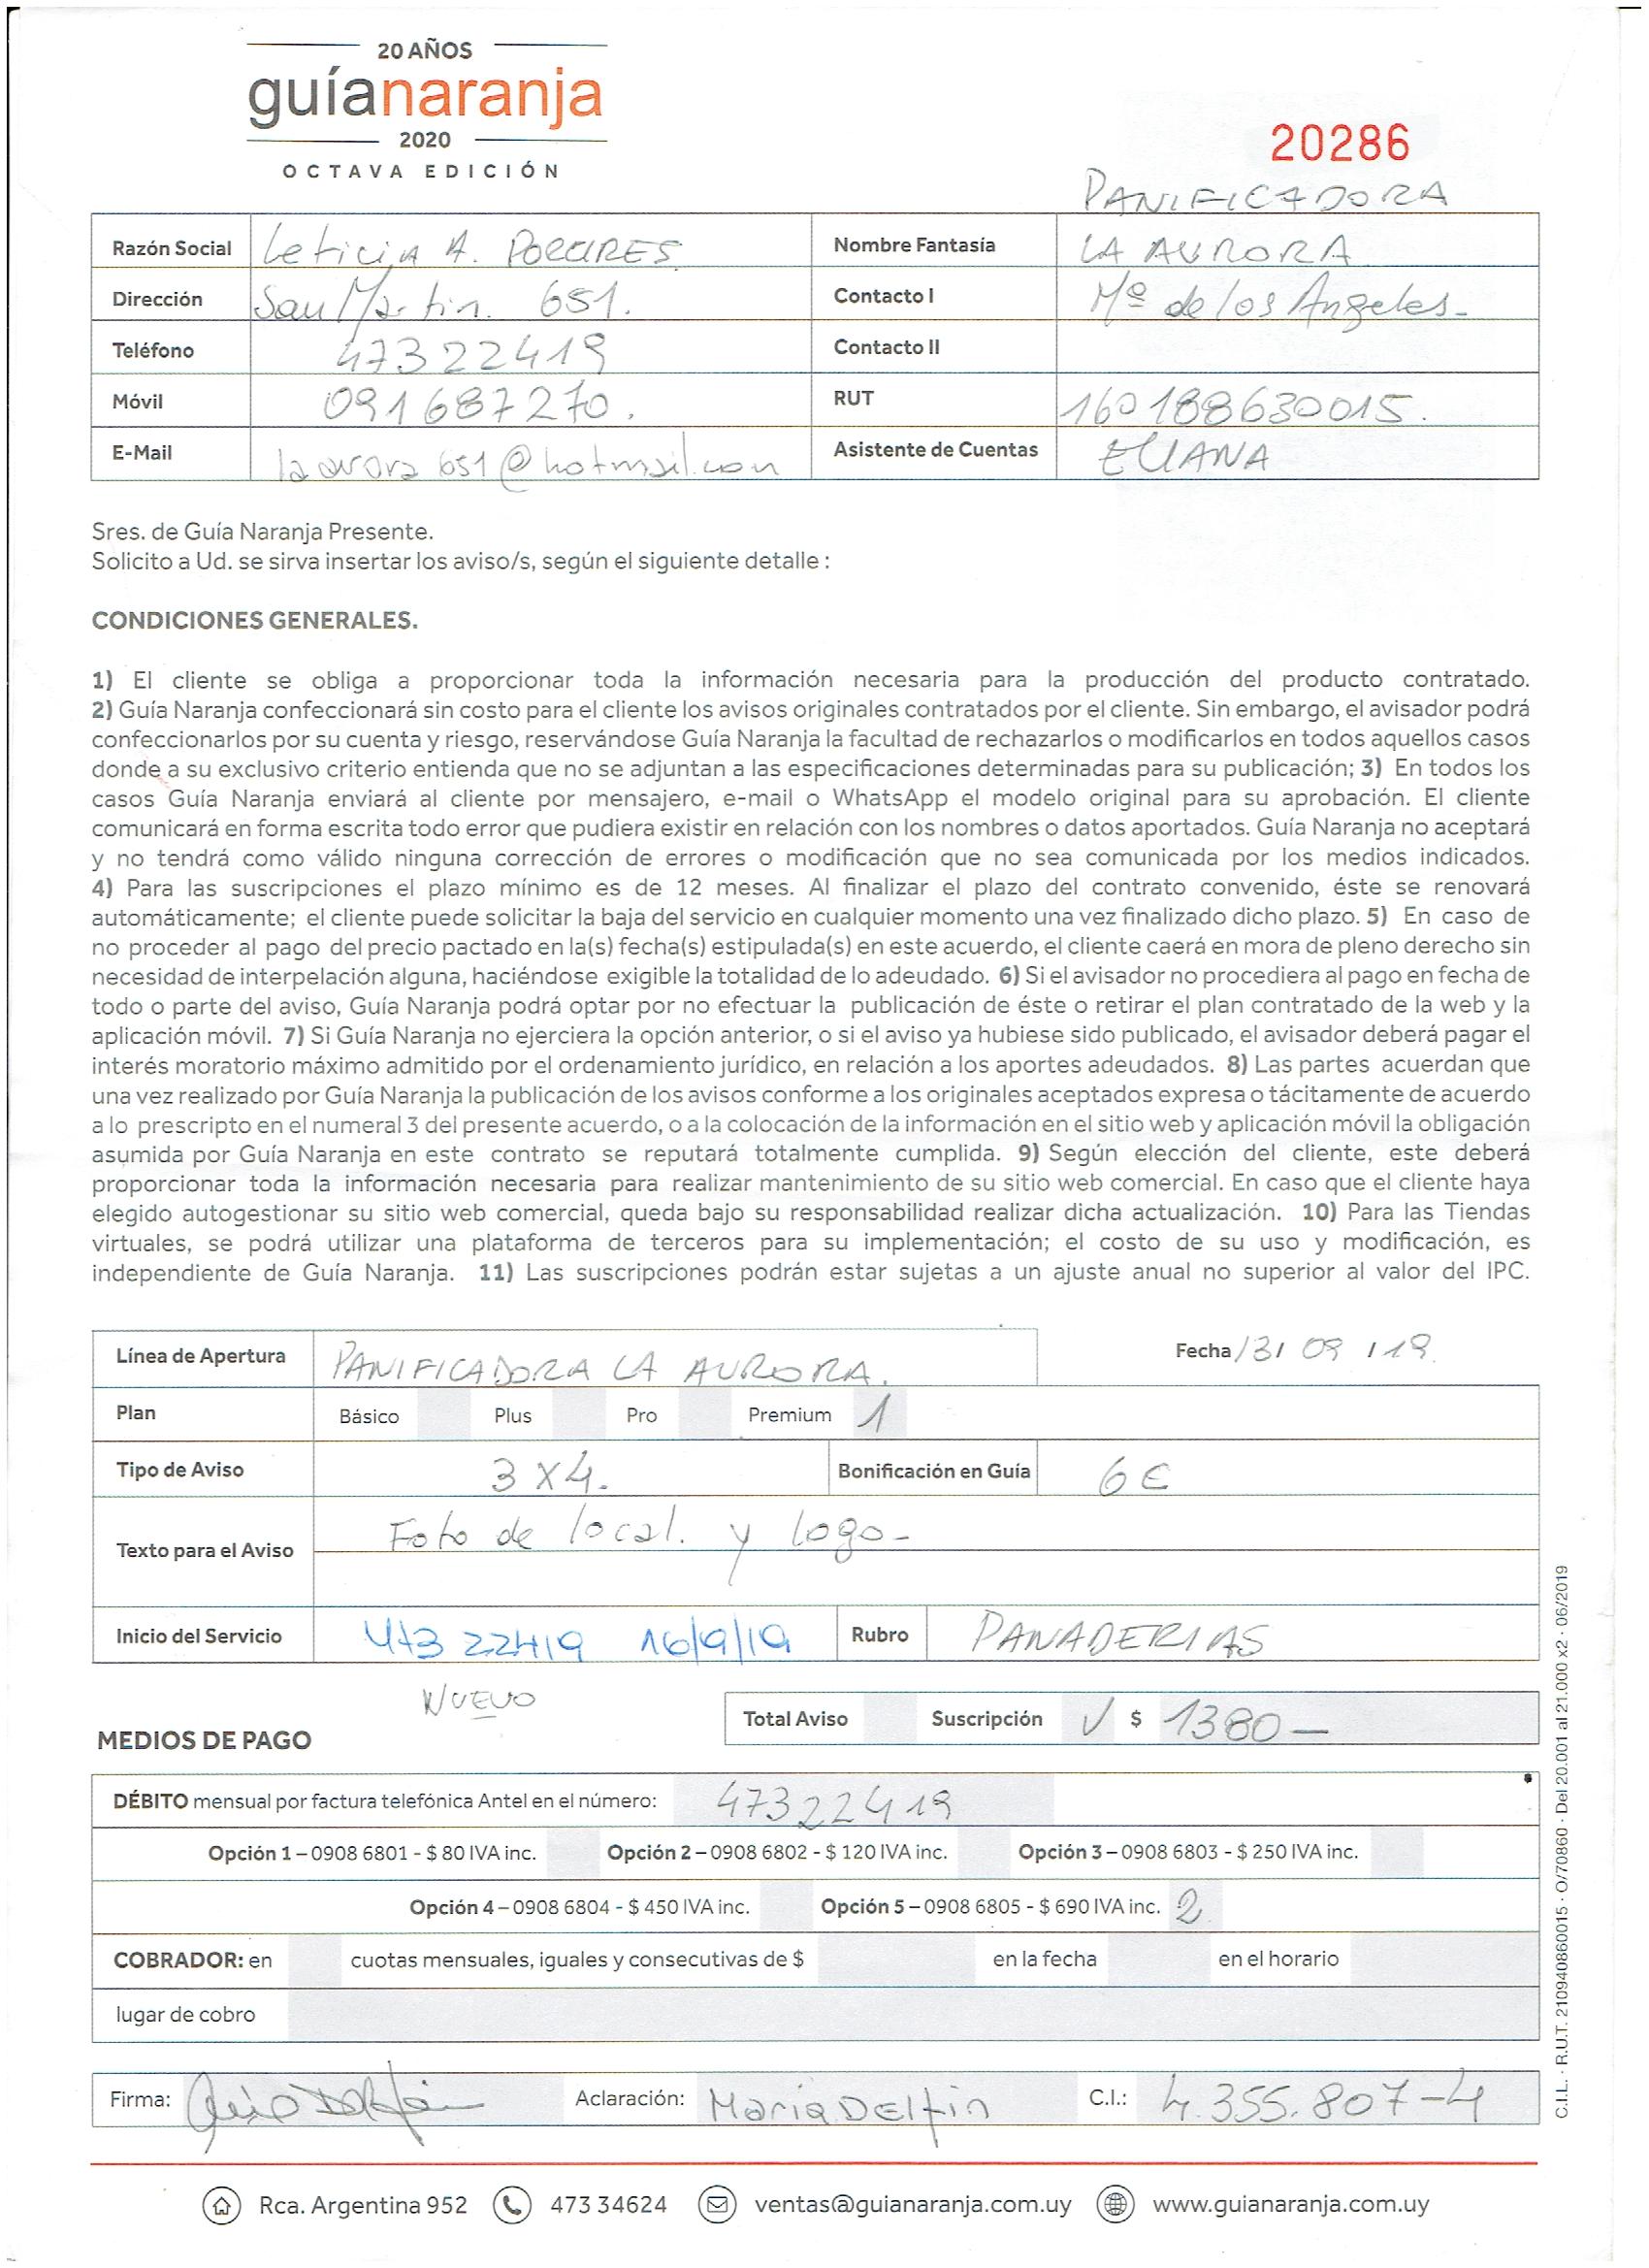 20 AÑOS
guíanaranja
2020
OCTAVA EDICIÓN
20286
PANIFICADORA
Razón Social Leticia A. Nombre Fantasía LA AURORA
Dirección San Martin. 651. Contacto I Mª de los Angeles-
Teléfono 47322419 Contacto II
Móvil 091687270. RUT 160188630015.
E-Mail laurora651@hotmail.com Asistente de Cuentas ELIANA
Sres. de Guía Naranja Presente.
Solicito a Ud. se sirva insertar los aviso/s, según el siguiente detalle :
CONDICIONES GENERALES.
1) El cliente se obliga a proporcionar toda la información necesaria para la producción del producto contratado.
2) Guía Naranja confeccionará sin costo para el cliente los avisos originales contratados por el cliente. Sin embargo, el avisador podrá
confeccionarlos por su cuenta y riesgo, reservándose Guía Naranja la facultad de rechazarlos o modificarlos en todos aquellos casos
donde a su exclusivo criterio entienda que no se adjuntan a las especificaciones determinadas para su publicación; 3) En todos los
casos Guía Naranja enviará al cliente por mensajero, e-mail o WhatsApp el modelo original para su aprobación. El cliente
comunicará en forma escrita todo error que pudiera existir en relación con los nombres o datos aportados. Guía Naranja no aceptará
y no tendrá como válido ninguna corrección de errores o modificación que no sea comunicada por los medios indicados.
4) Para las suscripciones el plazo mínimo es de 12 meses. Al finalizar el plazo del contrato convenido, éste se renovará
automáticamente; el cliente puede solicitar la baja del servicio en cualquier momento una vez finalizado dicho plazo. 5) En caso de
no proceder al pago del precio pactado en la(s) fecha(s) estipulada(s) en este acuerdo, el cliente caerá en mora de pleno derecho sin
necesidad de interpelación alguna, haciéndose exigible la totalidad de lo adeudado. 6) Si el avisador no procediera al pago en fecha de
todo o parte del aviso, Guía Naranja podrá optar por no efectuar la publicación de éste o retirar el plan contratado de la web y la
aplicación móvil. 7) Si Guía Naranja no ejerciera la opción anterior, o si el aviso ya hubiese sido publicado, el avisador deberá pagar el
interés moratorio máximo admitido por el ordenamiento jurídico, en relación a los aportes adeudados. 8) Las partes acuerdan que
una vez realizado por Guía Naranja la publicación de los avisos conforme a los originales aceptados expresa o tácitamente de acuerdo
a lo prescripto en el numeral 3 del presente acuerdo, o a la colocación de la información en el sitio web y aplicación móvil la obligación
asumida por Guía Naranja en este contrato se reputará totalmente cumplida. 9) Según elección del cliente, este deberá
proporcionar toda la información necesaria para realizar mantenimiento de su sitio web comercial. En caso que el cliente haya
elegido autogestionar su sitio web comercial, queda bajo su responsabilidad realizar dicha actualización. 10) Para las Tiendas
virtuales, se podrá utilizar una plataforma de terceros para su implementación; el costo de su uso y modificación, es
independiente de Guía Naranja. 11) Las suscripciones podrán estar sujetas a un ajuste anual no superior al valor del IPC.
Línea de Apertura PANIFICADORA LA AURORA. Fecha 13/ 09 /19.
Plan Básico Plus Pro Premium 1
Tipo de Aviso 3x4. Bonificación en Guía 6E
Texto para el Aviso Foto de local. y logo-
Inicio del Servicio 473 22419 16/9/19 Rubro PANADERIAS
NUEVO
Total Aviso Suscripción √ $ 1380—
MEDIOS DE PAGO
DÉBITO mensual por factura telefónica Antel en el número: 47322419
Opción 1 – 0908 6801 - $ 80 IVA inc. Opción 2 – 0908 6802 - $ 120 IVA inc. Opción 3 – 0908 6803 - $ 250 IVA inc.
Opción 4 – 0908 6804 - $ 450 IVA inc. Opción 5 – 0908 6805 - $ 690 IVA inc. 2
COBRADOR: en cuotas mensuales, iguales y consecutivas de $ en la fecha en el horario
lugar de cobro
Firma: Aclaración: María Delfin C.I.: 4.355.807-4
Rca. Argentina 952 473 34624 ventas@guianaranja.com.uy www.guianaranja.com.uy
C.I.L. · R.U.T. 210940860015 · O/70860 · Del 20.001 al 21.000 x2 · 06/2019